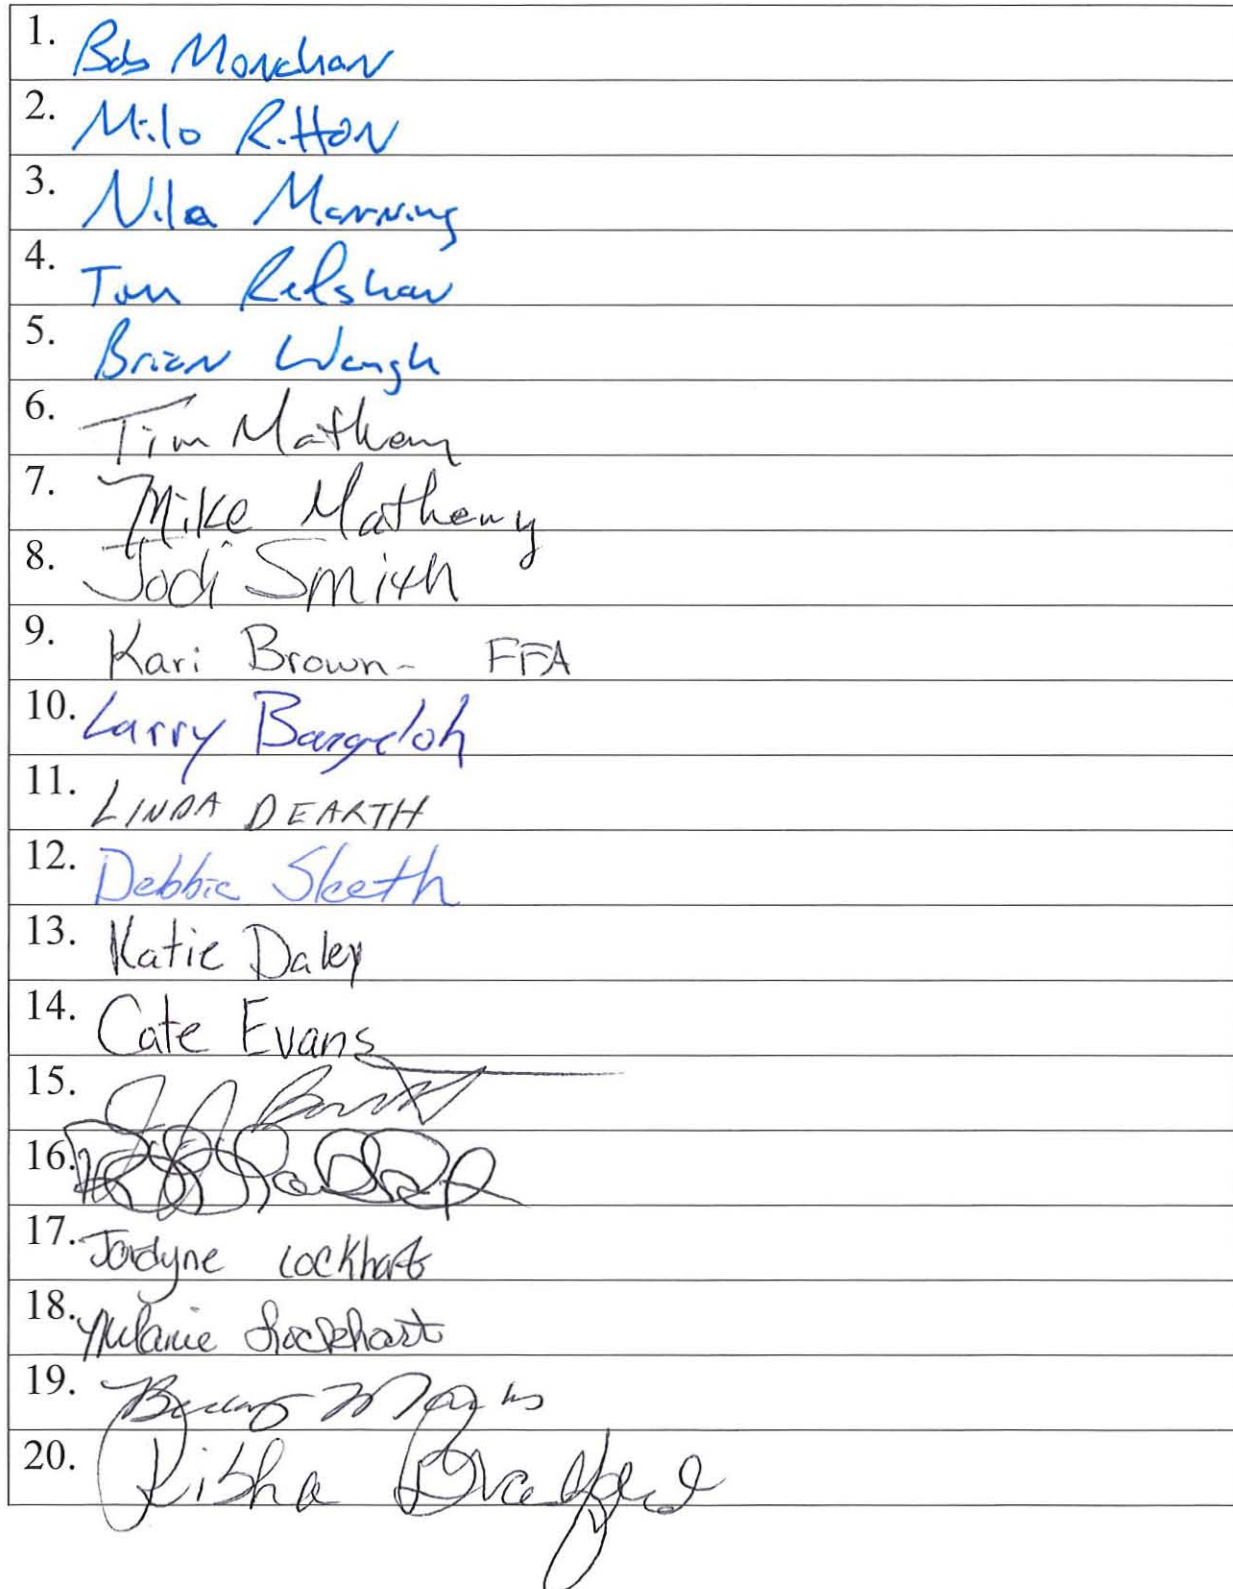 1. Bob Monahan
2. Milo Ritton
3. Nila Manning
4. Tom Relshaw
5. Brian Waugh
6. Tim Matheny
7. Mike Matheny
8. Jodi Smith
9. Kari Brown - FFA
10. Larry Bargeloh
11. LINDA DEARTH
12. Debbie Sleeth
13. Katie Daley
14. Cate Evans
15.
16.
17. Jordyne Lockhart
18. Melanie Lockhart
19.
20. Bradford